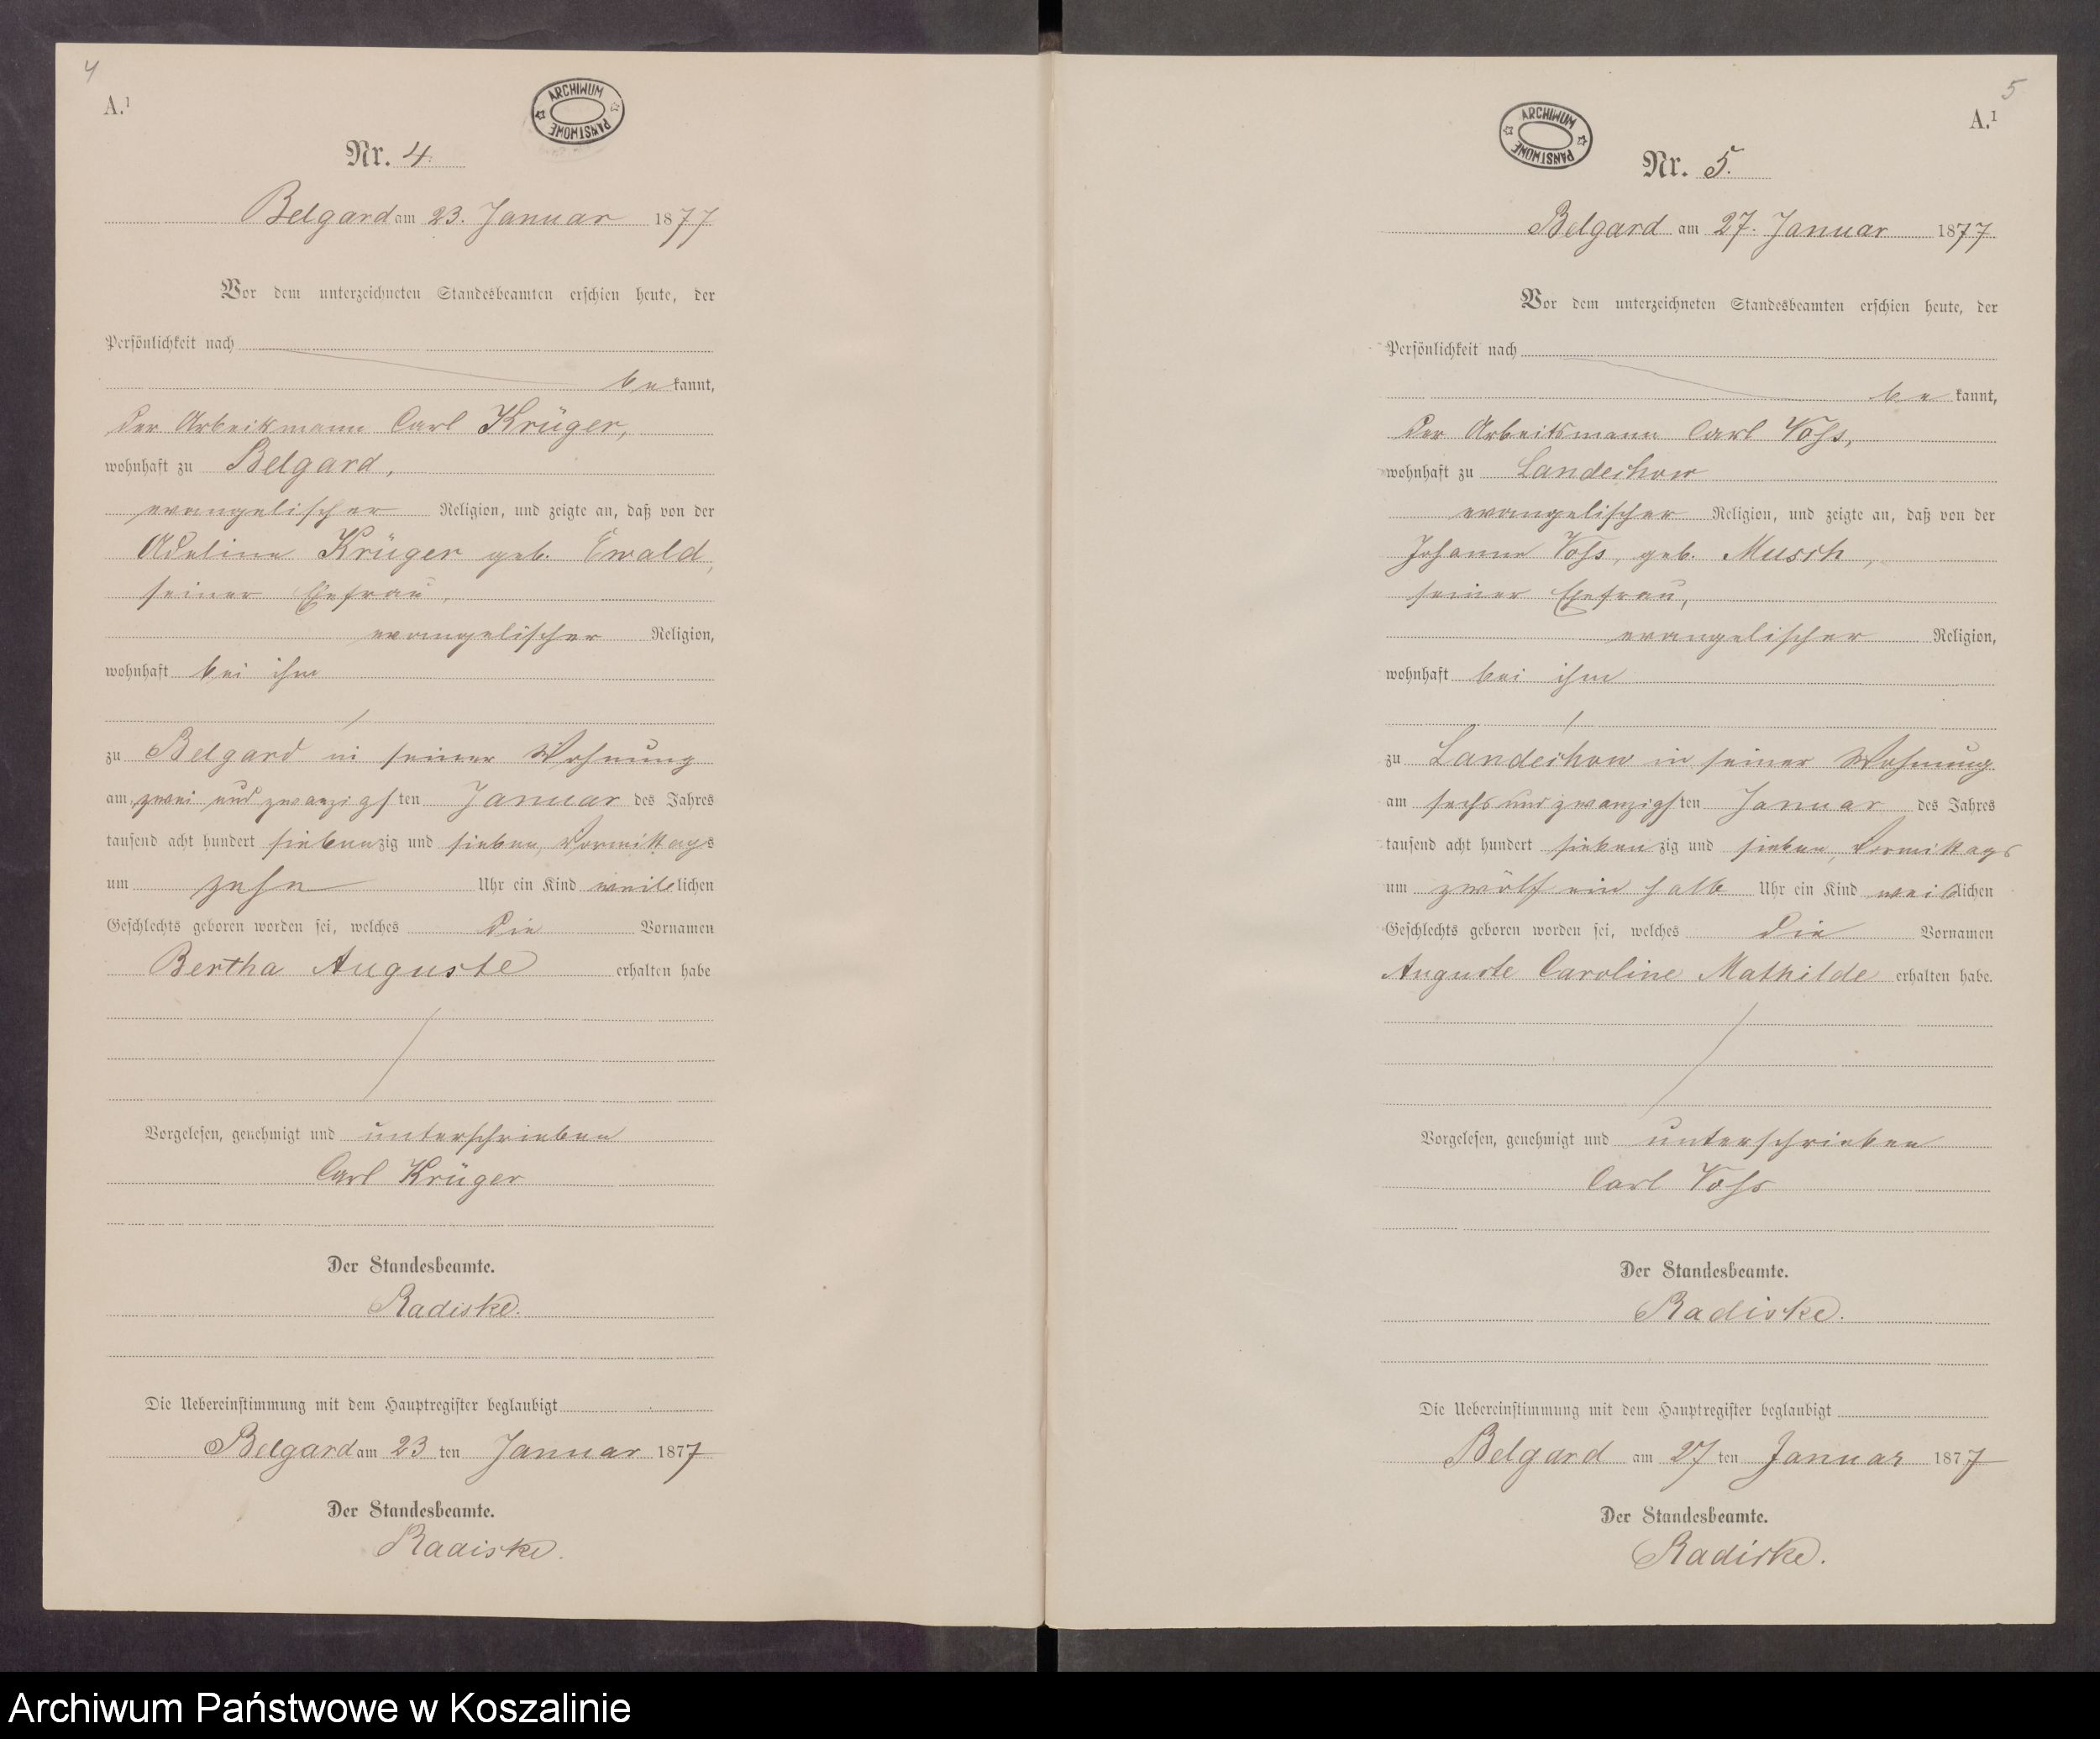 4
A.¹
ARCHIWUM PAŃSTWOWE
Nr. 4.
Belgard am 23. Januar 1877
Vor dem unterzeichneten Standesbeamten erschien heute, der
Persönlichkeit nach
be kannt,
der Arbeitsmann Carl Krüger,
wohnhaft zu Belgard,
evangelischer Religion, und zeigte an, daß von der
Adeline Krüger geb. Ewald,
seiner Ehefrau,
evangelischer Religion,
wohnhaft bei ihm
zu Belgard in seiner Wohnung
am zwei und zwanzigsten Januar des Jahres
tausend acht hundert siebenzig und sieben, Vormittags
um zehn Uhr ein Kind weiblichen
Geschlechts geboren worden sei, welches die Vornamen
Bertha Auguste erhalten habe
Vorgelesen, genehmigt und unterschrieben
Carl Krüger
Der Standesbeamte.
Radiske.
Die Uebereinstimmung mit dem Hauptregister beglaubigt
Belgard am 23 ten Januar 1877
Der Standesbeamte.
Radiske.
5
A.¹
ARCHIWUM PAŃSTWOWE
Nr. 5.
Belgard am 27. Januar 1877
Vor dem unterzeichneten Standesbeamten erschien heute, der
Persönlichkeit nach
be kannt,
der Arbeitsmann Carl Voss,
wohnhaft zu Landechow
evangelischer Religion, und zeigte an, daß von der
Johanne Voss, geb. Musch,
seiner Ehefrau,
evangelischer Religion,
wohnhaft bei ihm
zu Landechow in seiner Wohnung
am sechs und zwanzigsten Januar des Jahres
tausend acht hundert siebenzig und sieben, Vormittags
um zwölf ein halb Uhr ein Kind weiblichen
Geschlechts geboren worden sei, welches die Vornamen
Auguste Caroline Mathilde erhalten habe.
Vorgelesen, genehmigt und unterschrieben
Carl Voss
Der Standesbeamte.
Radiske.
Die Uebereinstimmung mit dem Hauptregister beglaubigt
Belgard am 27 ten Januar 1877
Der Standesbeamte.
Radiske.
Archiwum Państwowe w Koszalinie